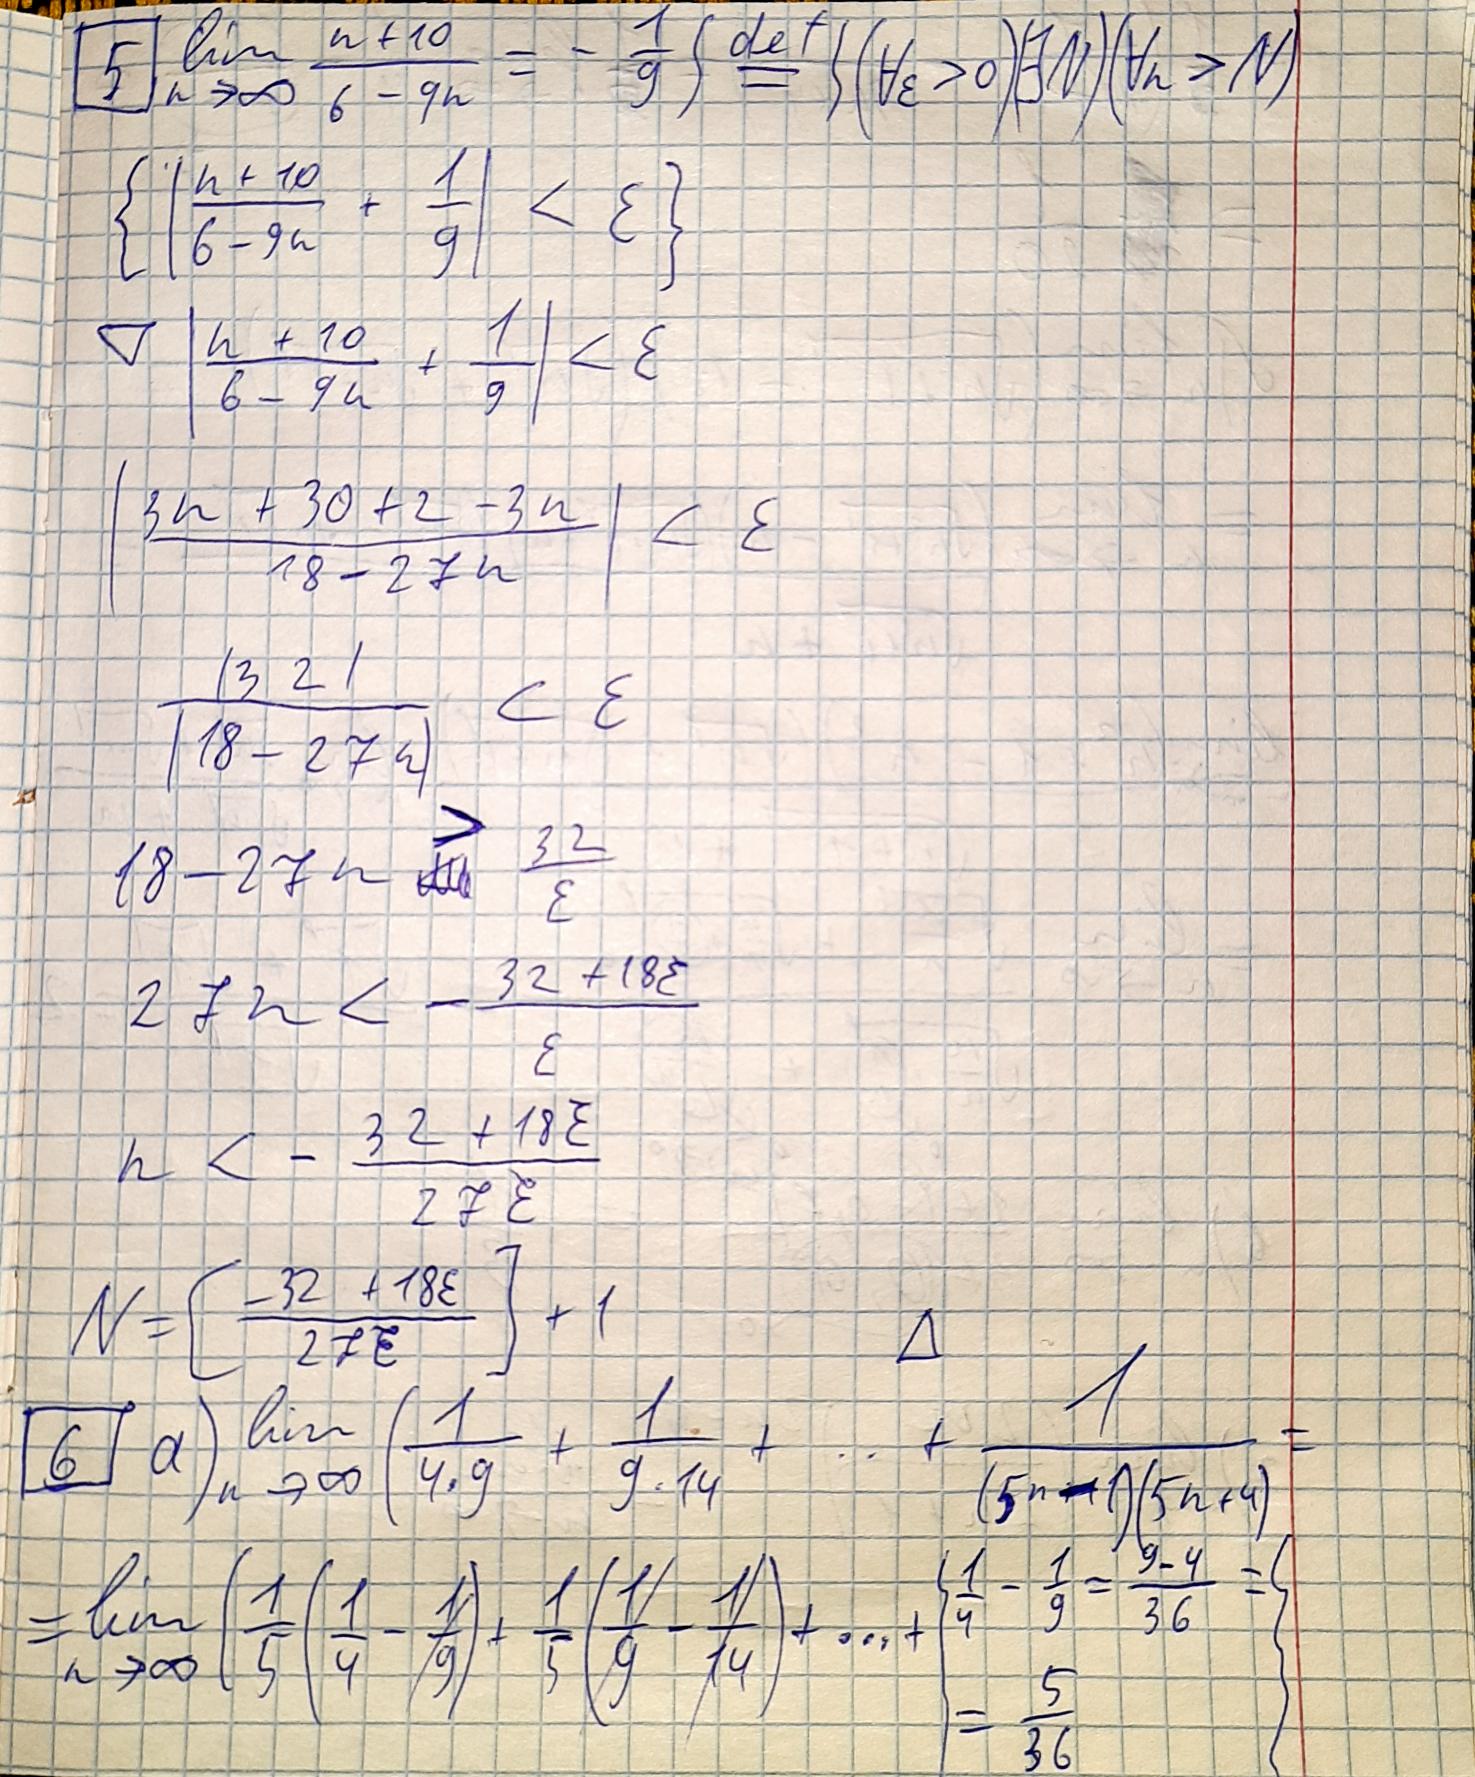 5 lim n→∞ (n+10)/(6-9n) = -1/9 } def= { (∀ε>0)(∃N)(∀n>N)
{ |(n+10)/(6-9n) + 1/9| < ε }
▽ |(n+10)/(6-9n) + 1/9| < ε
|(3n+30+2-3n)/(18-27n)| < ε
|32|/|18-27n| < ε
18-27n > 32/ε
27n < -(32+18ε)/ε
n < -(32+18ε)/(27ε)
N = [(-32+18ε)/(27ε)] + 1 △
6 a) lim n→∞ (1/(4·9) + 1/(9·14) + ... + 1/((5n-1)(5n+4)) =
= lim n→∞ (1/5(1/4 - 1/9) + 1/5(1/9 - 1/14) + ... + { 1/4 - 1/9 = (9-4)/36 =
= 5/36 }